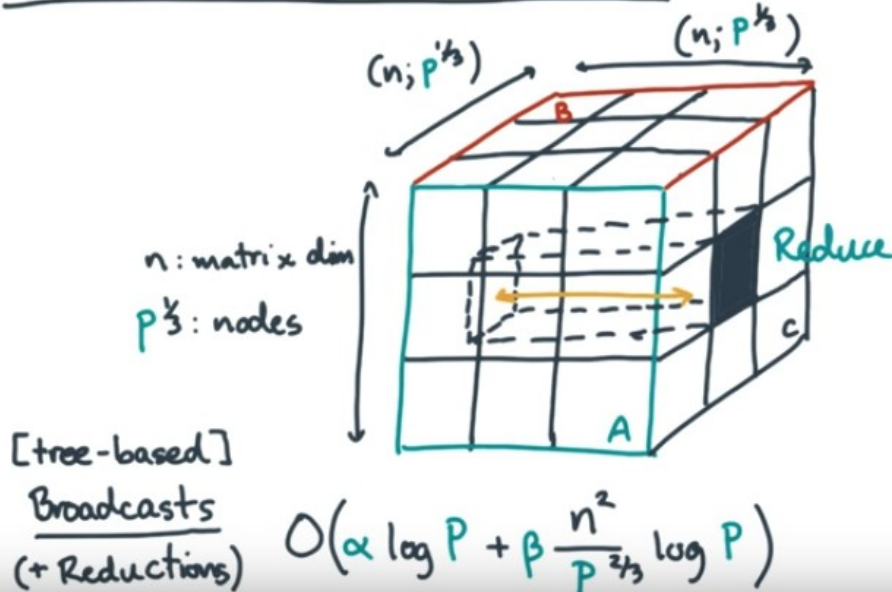 (n; P^1/3)
(n; P^1/3)
B
n: matrix dim
P^1/3: nodes
Reduce
C
A
[tree-based]
Broadcasts
(+ Reductions)
O(α log P + β n²/P^2/3 log P)